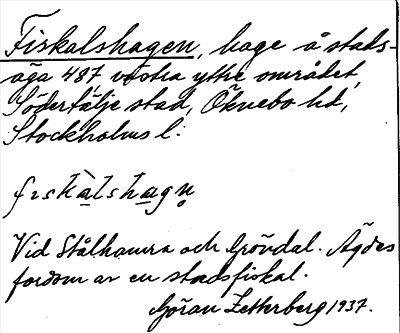 Fiskalshagen, hage å stads-
äga 487 västra yttre området,
Södertälje stad, Öknebo hd,
Stockholms l.
fiskàlshagn̥
Vid Stålhamra och Grövdal. Ägdes
fordom av en stadsfiskal.
Göran Zetterberg 1937.